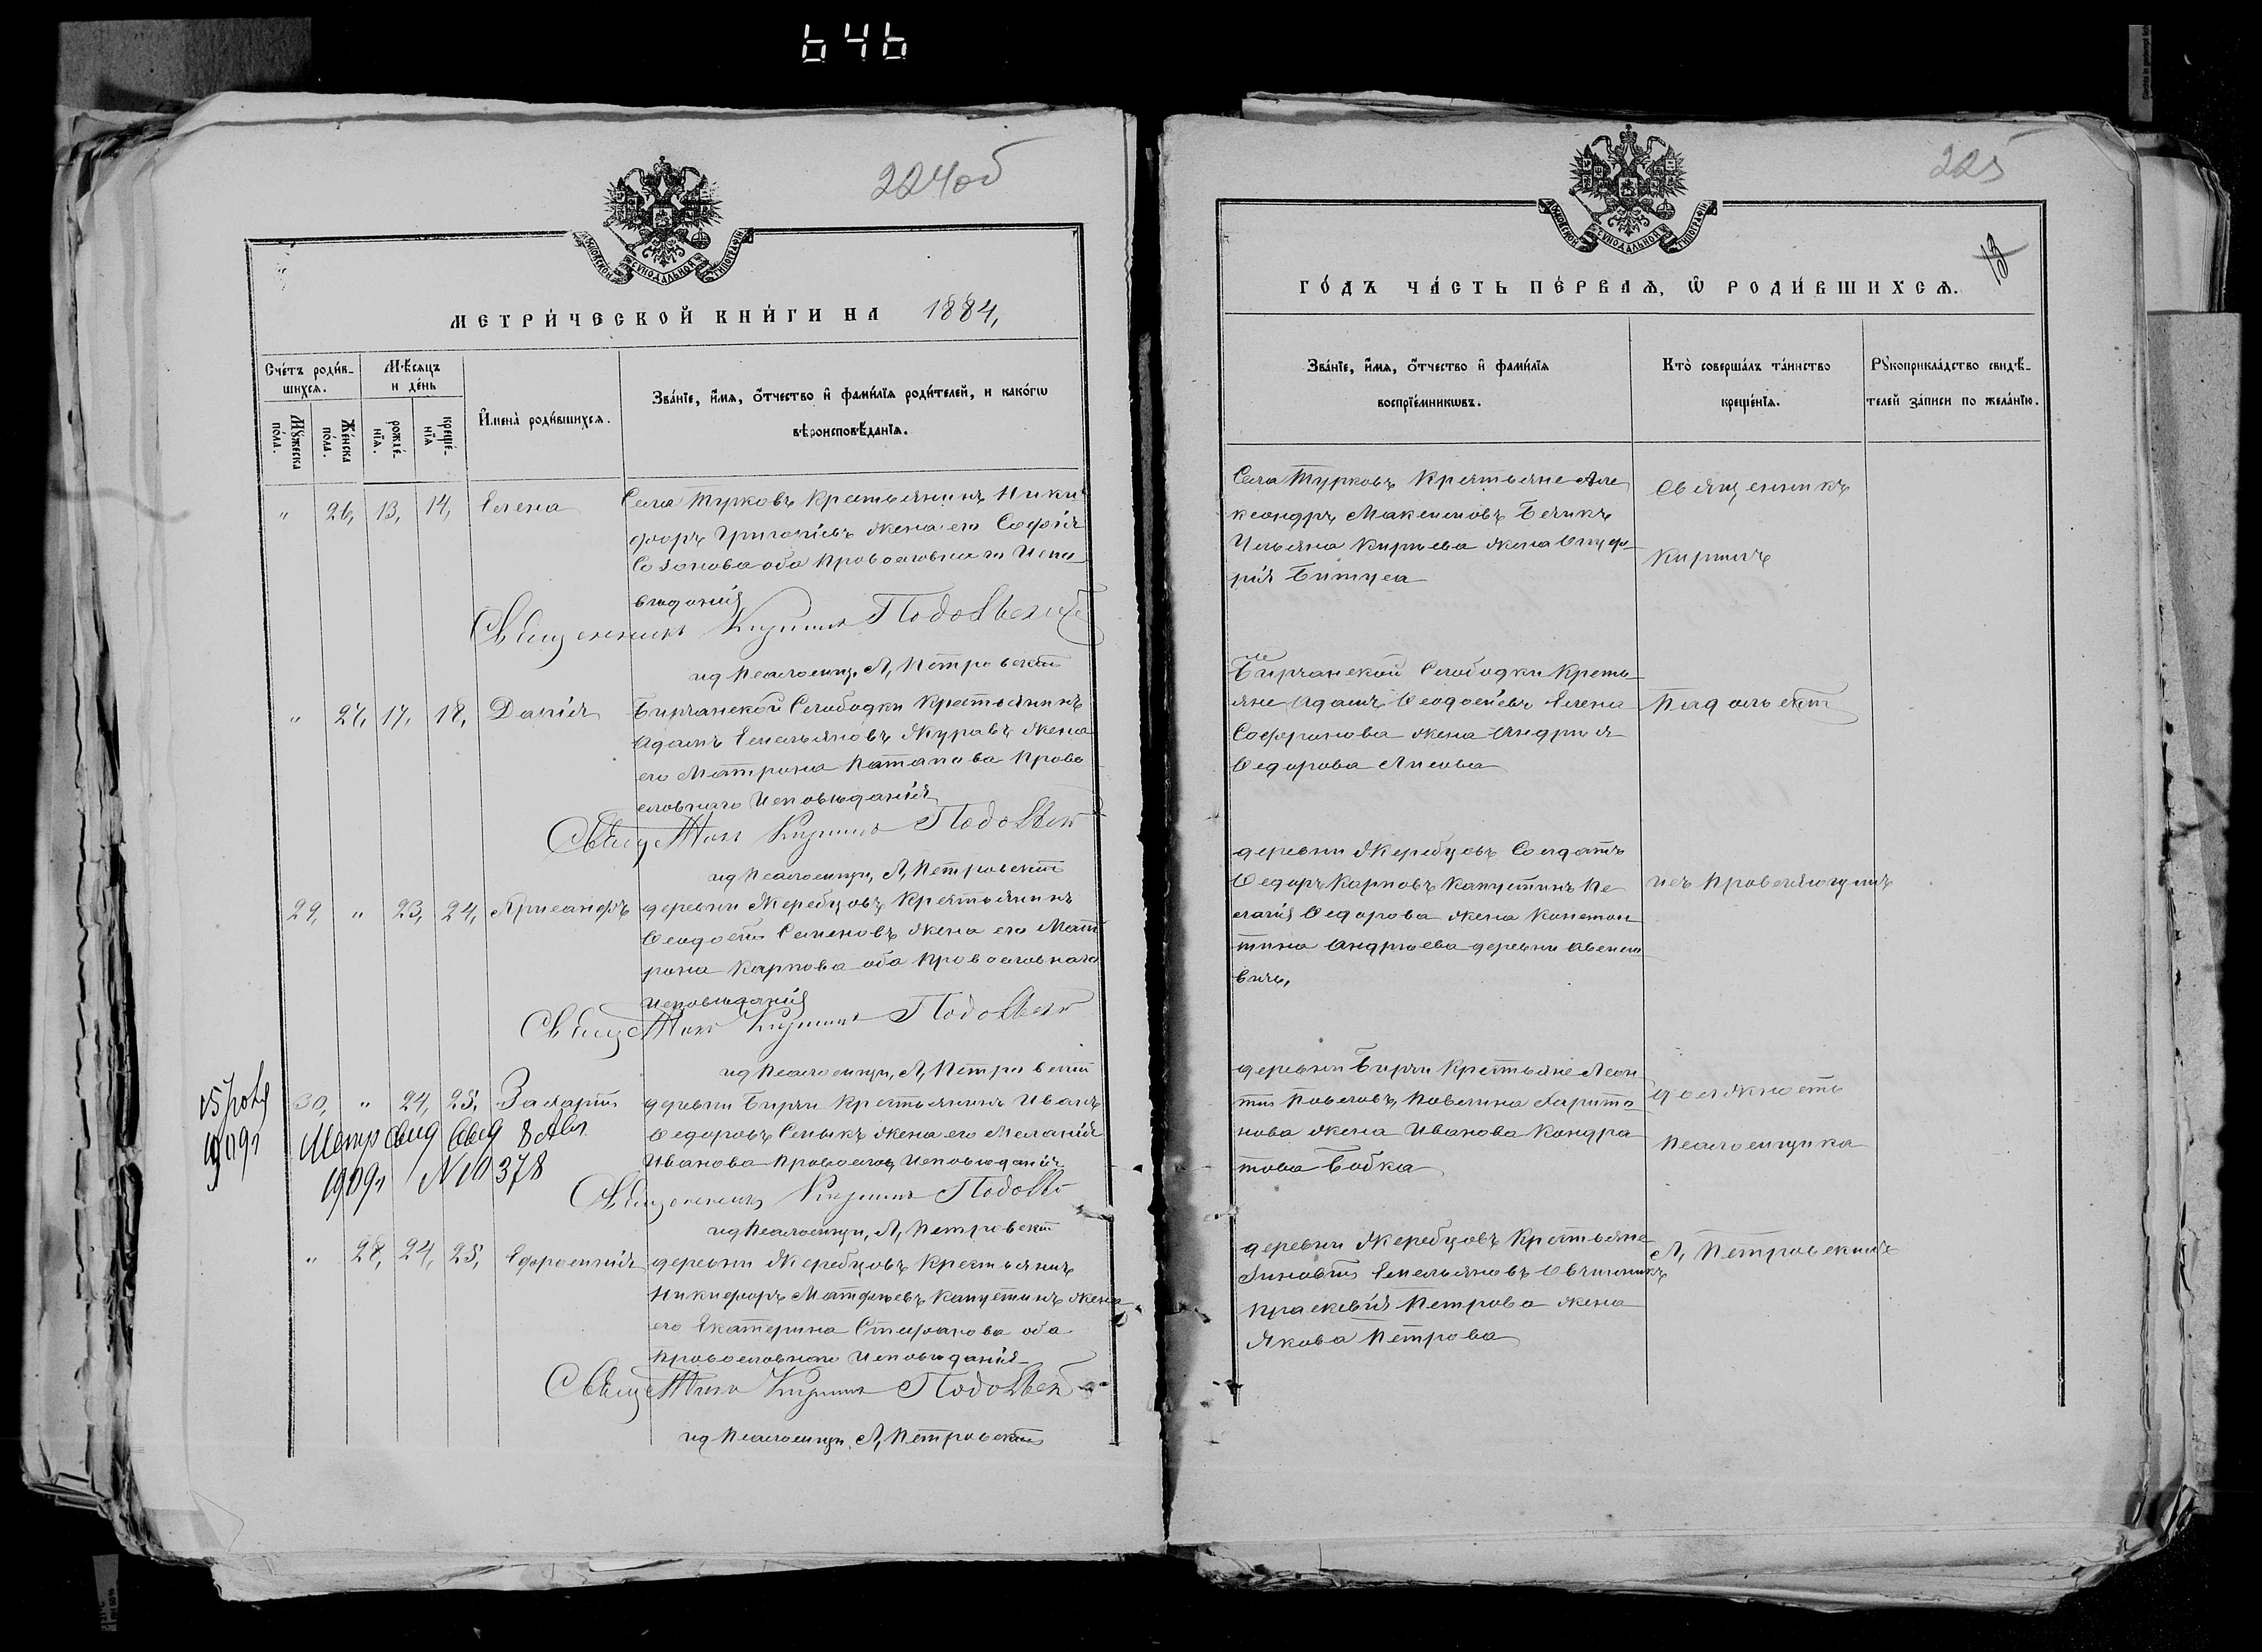 646
224об
МОСКОВСКОЙ СѴНОДАЛЬНОЙ ТИПОГРАФІИ
МЕТРИ́ЧЕСКОЙ КНИ́ГИ НА 1884,
Сче́тъ роди́в-
шихся.
Мѣ́сяцъ
и де́нь
Мꙋ́жеска
по́ла.
Же́нска
по́ла.
рожде́-
нїѧ.
креще́-
нїѧ
И҆мена̀ роди́вшихсѧ.
Зва́нїе, и҆́мѧ, ѻ҆́тчество и҆ фами́лїѧ роди́телей, и како́гѡ
вѣроисповѣ́данїѧ.
„ 26, 13, 14, Елена
Села Турковъ Крестьянинъ Ники
форъ Григоріевъ жена его Софія
Созонова оба Православнаго Испо
вѣданія
Священникъ Кирилл Подольскій
ид Псаломщ. Л, Петровскій
„ 27, 17, 18, Дарія
Бирчанской Слободки Крестьянинъ
Адамъ Емельяновъ Журавъ жена
его Матрона Потапова Право
славнаго Исповѣданія
Кирилл Подольск
ид Псаломщ, Л, Петровскій
29, „ 23, 24,
деревни Жеребцовъ Крестьянинъ
Ѳеодосій Семеновъ жена его Мат
рона Карпова оба Православнаго
Исповѣданія
Кирилл Подольск
ид Псаломщ, Л, Петровскій
15
1909г
30, „ 24, 25, Захарій
деревни Бирчи Крестьянинъ Иванъ
Ѳедоровъ жена его Меланія
Иванова Правослов Исповѣданія
Метр Свид 8
1909г N 10378
Священникъ Кирилл
ид Псаломщ, Л, Петровскій
„ 28, 24, 25, Ефросинія
деревни Жеребцовъ Крестьянинъ
Никифоръ Матфѣевъ Капустинъ жена
его Екатерина Стефанова оба
Православнаго Исповѣданія
Кирилл Подольск
ид Псаломщ, Л, Петровскій
225
13
МОСКОВСКОЙ СѴНОДАЛЬНОЙ ТИПОГРАФІИ
ГО́ДЪ ЧА́СТЬ ПЕ́РВАѦ, Ѿ РОДИ́ВШИХСѦ.
Зва́нїе, и҆́мѧ, ѻ҆́тчество и҆ фами́лїѧ
воспрїе́мникѡвъ.
Кто̀ соверша́лъ та́инство
креще́нїѧ.
Рꙋкоприкла́дство свидѣ́-
телей за́писи по жела́нїю.
Села Турковъ Крестьяне Але
ксандръ Максимовъ
жена Онуф
рія
Священникъ
Кириллъ
Бирчанской Слободки Кресть
яне Адамъ Ѳеодосіевъ Елена
Софронова жена Андрія
Ѳедорова Лисова
Подольскій
деревни Жеребцовъ Солдатъ
Ѳедоръ Карповъ Капустинъ Пе
лагія Ѳедорова жена Констан
тина Андріева деревни
исправляющій
деревни Бирчи Крестьяне Леон
тій Павловъ, Павлина Харито
нова жена Иванова Кондра
това Бобка
должность
Псаломщика
деревни Жеребцовъ Крестьяне
Зиновій Емельяновъ
Праскевія Петрова жена
Якова Петрова
Л, Петровскій